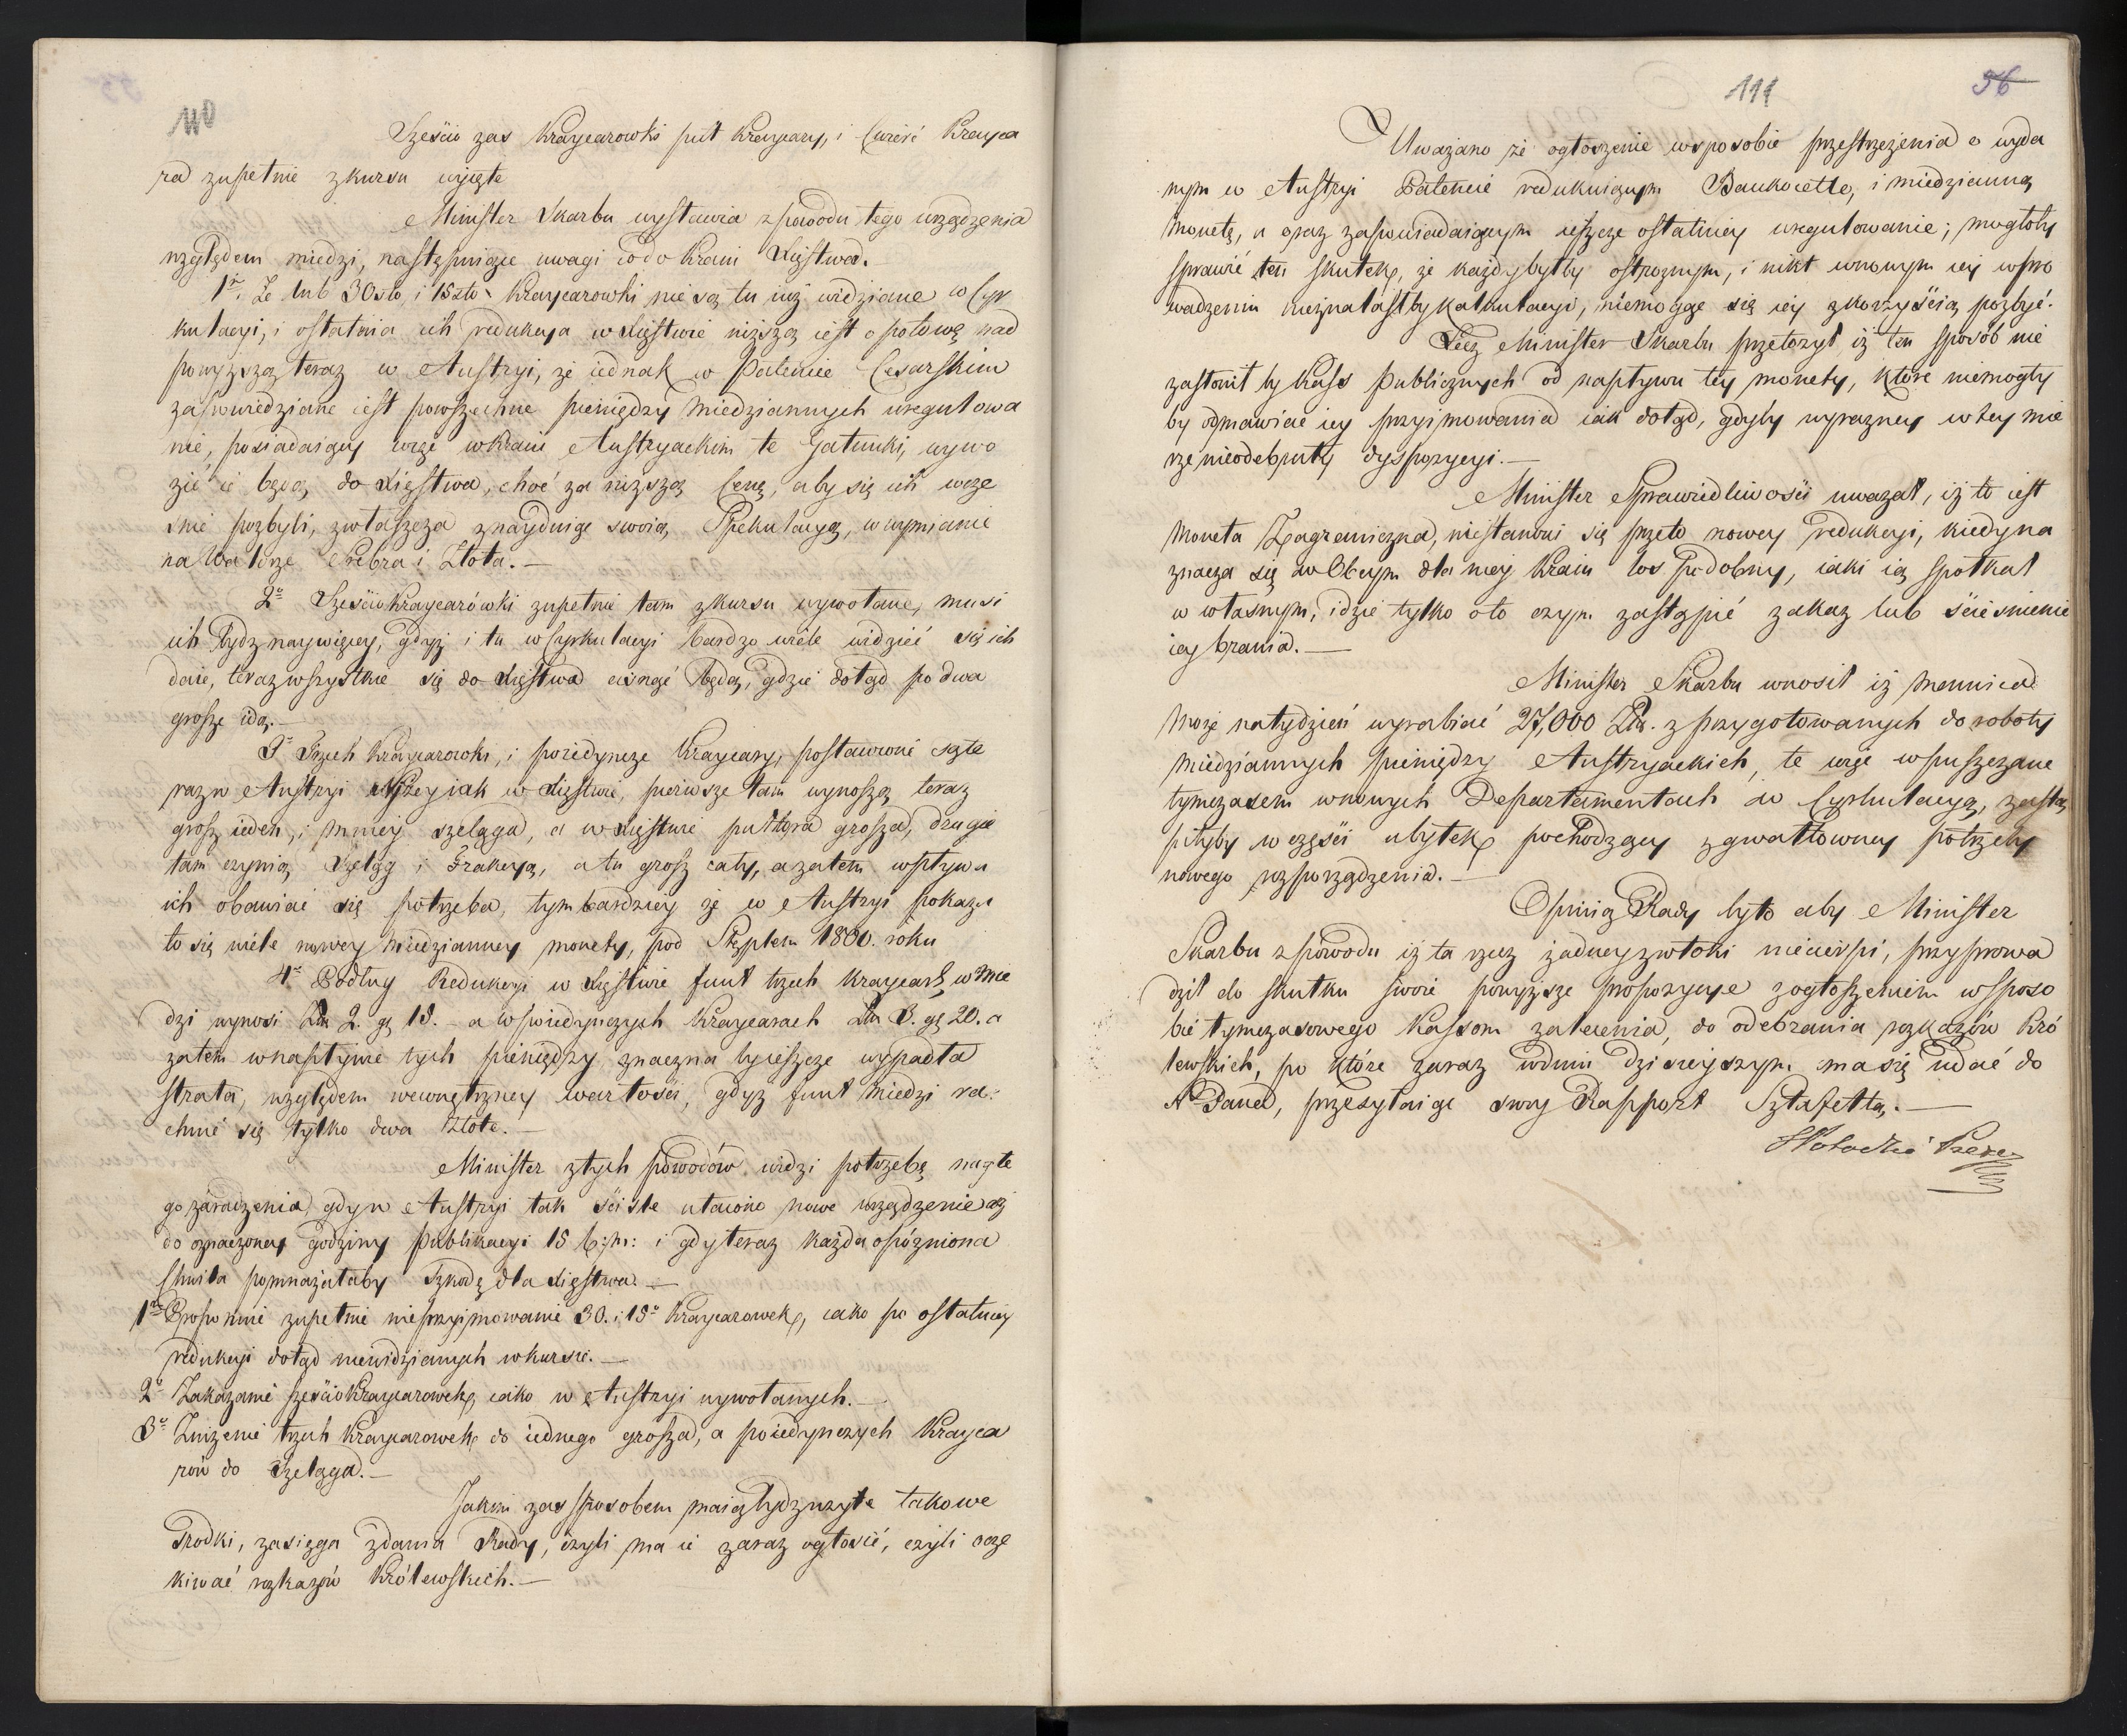 110
Sześcio zas Kraycarowki puł Kraycary, i ćwierć Krayca
ra zupełnie z kursu wyięte
Minister Skarbu wystawia z powodu tego urządzenia
względem miedzi, następuiące uwagi co do Kraiu Xięstwa.
1o. Że lub 30sto i 15sto Kraycarowki nie są tu iuż widziane w Cyr
kulacyi, i ostatnia ich redukcya w Xięstwie niższą iest o połowę nad
powyższą teraz w Austryi, że iednak w Patencie Cesarskim
zapowiedziane iest powszechne pieniędzy miedziannych uregulowa
nie, posiadaiący więc w Kraiu Austryackim te Gatunki, wywo
zić ie będą do Xięstwa, choć za niższą Cenę, aby się ich wcze
snie pozbyli, zwłaszcza znayduiąc swoią Spekulacyą, w wymianie
na Walorze Srebra i Złota. —
2o Sześcio Kraycarówki zupełnie tam z kursu wywołane, musi
ich bydz naywięcey, gdyż i tu w Cyrkulacyi bardzo wiele widzieć się ich
daie, teraz wszystkie się do Xięstwa cisnąć będą, gdzie dotąd po dwa
grosze idą. —
3o Trzech Kraycarowki, i poiedyncze Kraycary, postawione są te
raz w Austryi niżey iak w Xięstwie, pierwsze tam wynoszą teraz
grosz ieden, i mniey szeląga, a w Xięstwie pułtora grosza, drugie
tam czynią Szeląg i Frakcyą, a tu grosz cały, a zatem wpływu
ich obawiać się potrzeba, tym bardziey że w Austryi pokazu
to się wiele nowey miedzianney monety, pod Stęplem 1800. roku
4o Podług Redukcyi w Xięstwie funt trzech kraycar: w Mie
dzi wynosi Złł 2. gr 18. — a w poiedynczych Kraycarach Złł 3. gr 20. a
zatem w napływie tych pieniędzy znaczna by ieszcze wypadła
strata, względem wewnętrzney wartości, gdyż funt miedzi ra:
chuie się tylko dwa Złote. —
Minister z tych powodów widzi potrzebę nagłe
go zaradzenia, gdy w Austryi tak ściśle utaiono nowe urządzenie aż
do oznaczoney godziny Publikacyi 15 b: m: i gdy teraz każda opózniona
Chwila pomnażałaby Szkodę dla Xięstwa. —
1o Proponuie zupełnie nieprzyimowanie 30. i 15o Kraycarowek, iako po ostatniey
redukcyi dotąd niewidzianych w kursie. —
2o Zakazanie sześcio Kraycarowek, iako w Austryi wywołanych. —
3o Zniżenie trzech Kraycarowek do iednego grosza, a poiedynczych Krayca
row do Szeląga. —
Jakim zas sposobem maią bydz użyte takowe
Srodki, zasięga zdania Rady, czyli ma ie zaraz ogłosić, czyli ocze
kiwać rozkazów Królewskich. —
111
56
Uważano że ogłoszenie w sposobie przestrzeżenia o wyda
nym w Austryi Patencie redukuiącym Bankocetle, i miedzianną
Monetę, a oraz zapowiadaiącym ieszcze ostatniey uregulowanie; mogłoby
sprawić ten skutek, że każdy byłby ostrożnym, i nikt w nowym iey wpro
wadzeniu nieznalasłby kalkulacyi, niemogąc się iey z korzyścią pozbyć.
Lecz Minister Skarbu przełożył iż ten sposób nie
zasłoniłby Kass Publicznych od napływu tey monety, które niemogły
by odmawiać iey przyimowania iak dotąd, gdyby wyrazney w tey mie
rze nieodebrały dyspozycyi. —
Minister Sprawiedliwości uważał, iż to iest
Moneta Zagraniczna, niestanowi się przeto nowey redukcyi, kiedy na
znacza się w Obcym dla niey Kraiu los podobny, iaki ią spotkał
w własnym, idzie tylko o to czym zastąpić zakaz lub ścieśnienie
iey brania. —
Minister Skarbu wnosił iż mennica
może na tydzień wyrabiać 27,000 Złł. z przygotowanych do roboty
miedziannych pieniędzy Austryackich, te więc wpuszczane
tymczasem w nowych Departamentach w Cyrkulacyą, zastą
piłyby w części ubytek, pochodzący z gwałtowney potrzeby
nowego rozporządzenia. —
Opinią Rady było aby Minister
Skarbu z powodu iż ta rzecz żadney zwłoki niecierpi, przyprowa
dził do skutku swoie powyższe propozycye z ogłoszeniem w sposo
bie tymczasowego Kassom zalecenia, do odebrania rozkazów Kró
lewskich, po które zaraz w dniu dzisieyszym ma się udać do
N. Pana, przesyłaiąc swoy Rapport Sztafettą. —
St Potocki Prezes